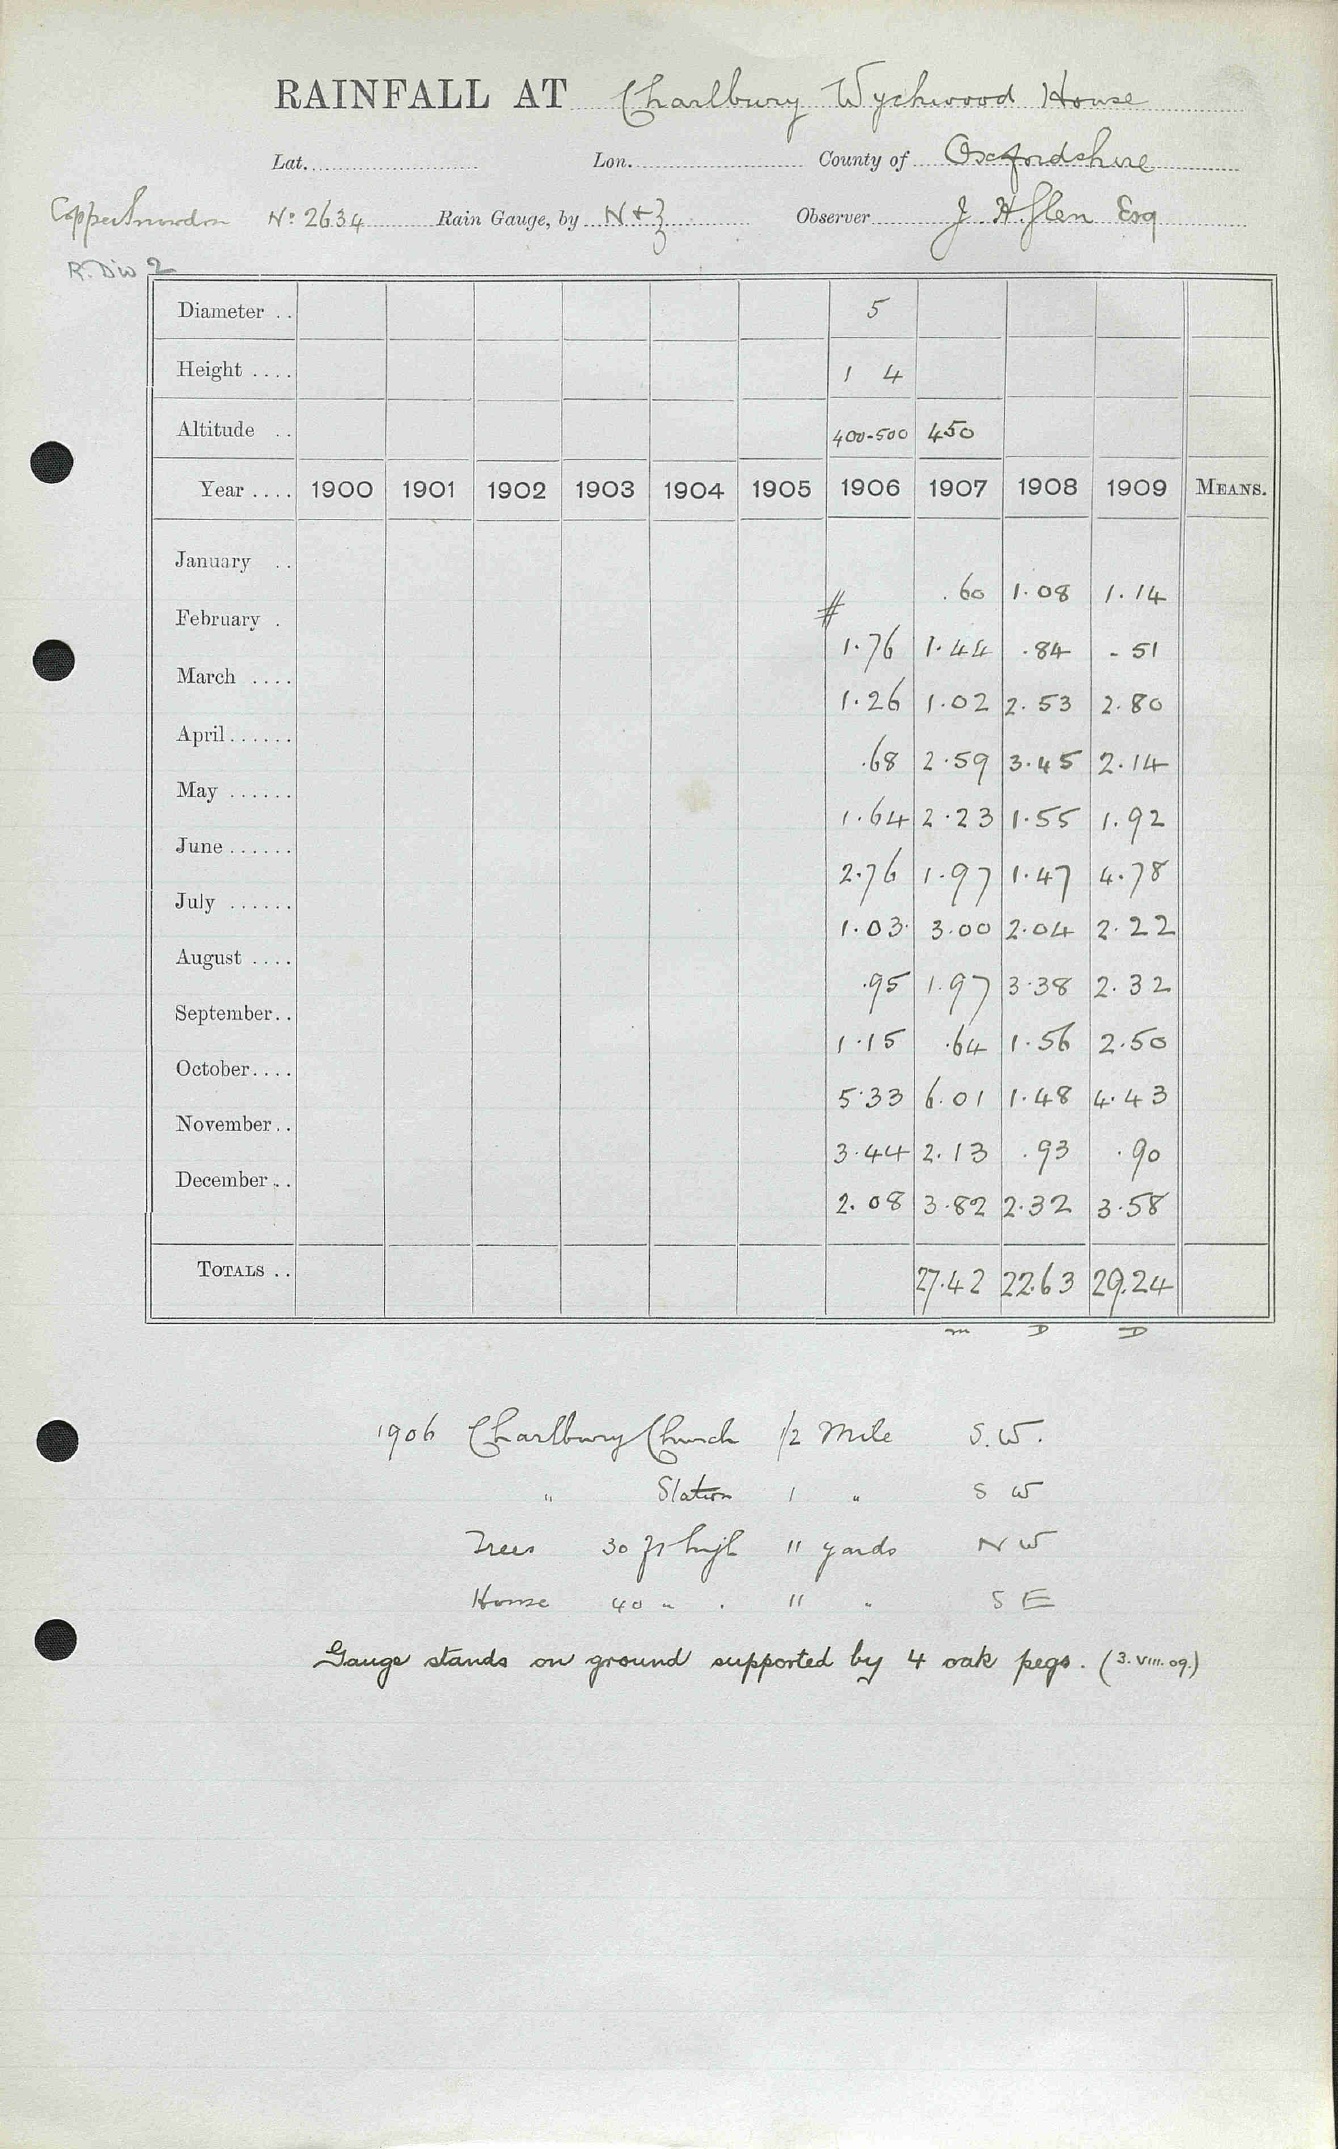 RAINFALL AT Charlbury Wychwood House
Lat. Lon. County of Oxfordshire
Copper Snowdon No 2634 Rain Gauge, by N+Z Observer J. H. Glen Esq
R. Div 2
Diameter .. 5
Height .... 1 4
Altitude .. 400-500 450
Year .... 1900 1901 1902 1903 1904 1905 1906 1907 1908 1909 MEANS.
January .. .60 1.08 1.14
#
February . 1.76 1.44 .84 .51
March .... 1.26 1.02 2.53 2.80
April...... .68 2.59 3.45 2.14
May ...... 1.64 2.23 1.55 1.92
June...... 2.76 1.97 1.47 4.78
July ...... 1.03 3.00 2.04 2.22
August .... .95 1.97 3.38 2.32
September.. 1.15 .64 1.56 2.50
October.... 5.33 6.01 1.48 4.43
November.. 3.44 2.13 .93 .90
December.. 2.08 3.82 2.32 3.58
TOTALS .. 27.42 22.63 29.24
m D D
1906 Charlbury Church 1/2 Mile S.W.
" Station 1 " S W
Trees 30 ft high 11 yards N W
House 40 " . 11 " S E
Gauge stands on ground supported by 4 oak pegs. (3.VIII.09.)